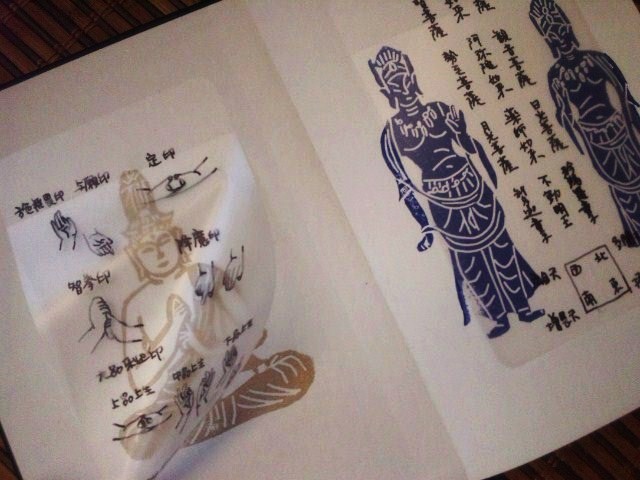 定印
与願印
施無畏印
降魔印
智拳印
九品来迎印
上品上生
中品上生
下品上生
菩薩
如来
菩薩
観音菩薩
阿弥陀如来
勢至菩薩
日光菩薩
薬師如来
月光菩薩
不動明王
北
東
南
西